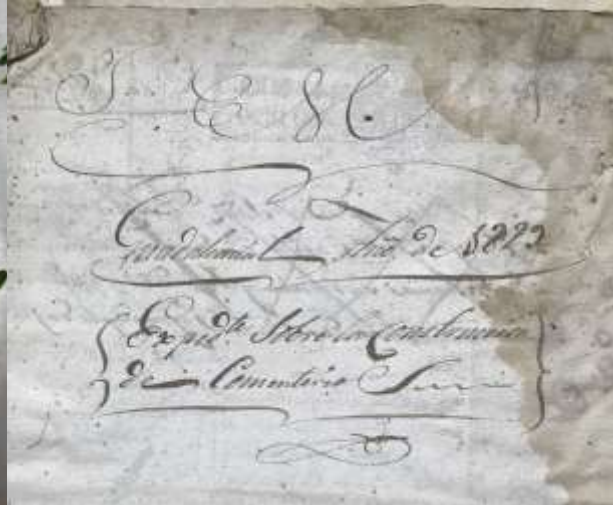 J. E. S C.
Guadalcanal Año de 1822
Exped.te Sobre la Construccion
de Cementerio